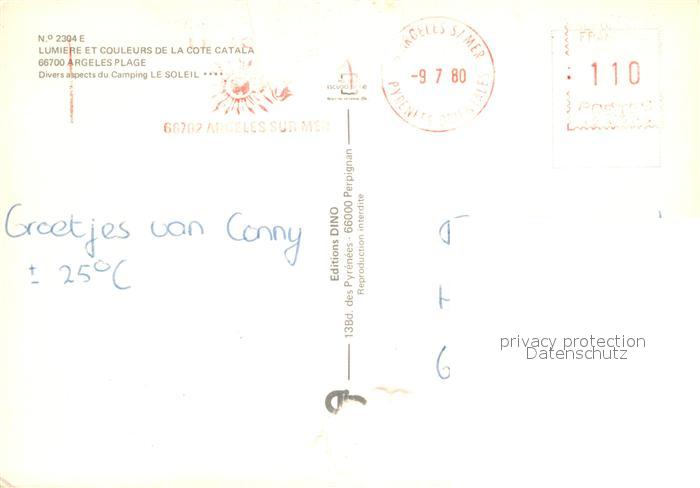 N.º 2304 E
LUMIERE ET COULEURS DE LA COTE CATALA
66700 ARGELES PLAGE
Divers aspects du Camping LE SOLEIL ****
66702 ARGELES SUR MER
ARGELES S/MER
-9 7 80
PYRENEES ORIENTALES
110
POSTES
Groetjes van Conny
± 25°C
Editions DINO
13Bd. des Pyrénées - 66000 Perpignan
Reproduction interdite
privacy protection
Datenschutz